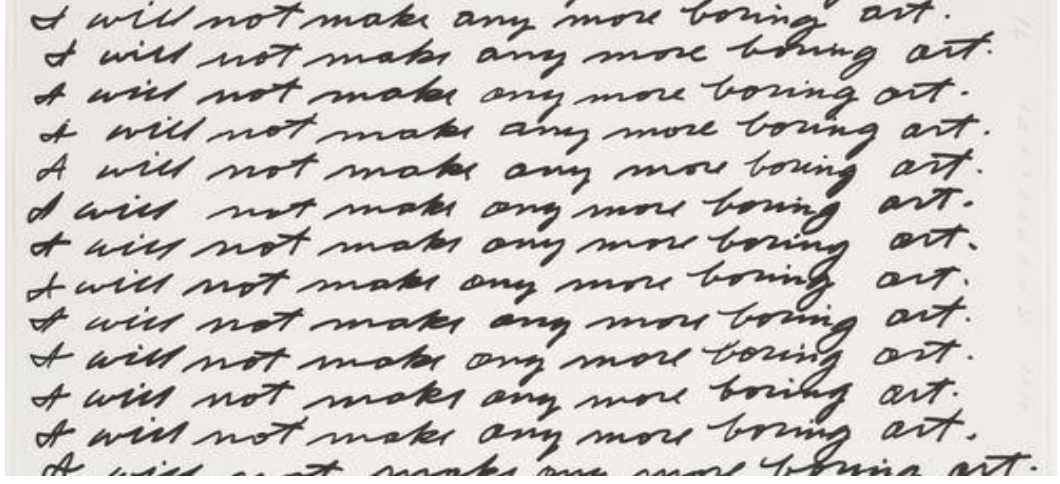 I will not make any more boring art.
I will not make any more boring art.
I will not make any more boring art.
I will not make any more boring art.
I will not make any more boring art.
I will not make any more boring art.
I will not make any more boring art.
I will not make any more boring art.
I will not make any more boring art.
I will not make any more boring art.
I will not make any more boring art.
I will not make any more boring art.
I will not make any more boring art.